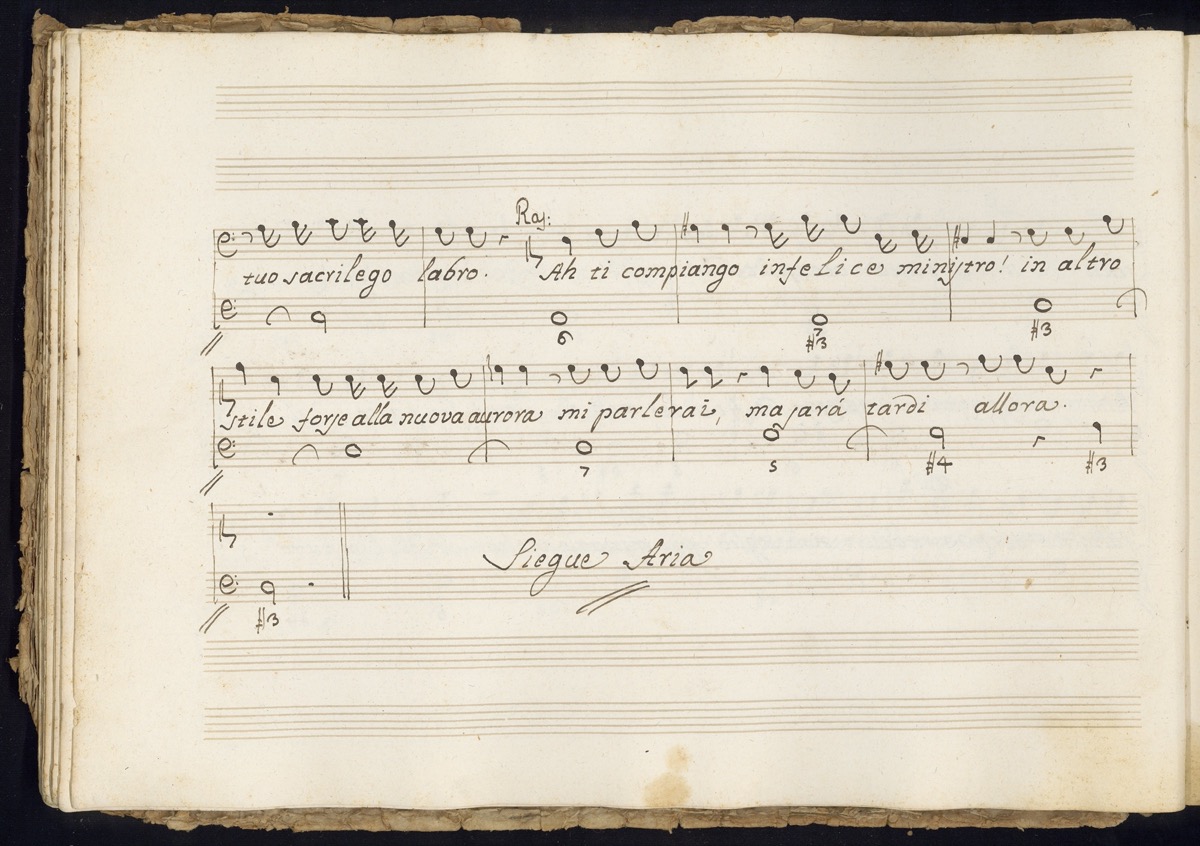 Raj:
tuo sacrilego labro. Ah ti compiango infelice ministro! in altro
6 7 #3 #3
stile forse alla nuova aurora mi parlerai, ma sará tardi allora.
7 5 #4 #3
Siegue Aria
#3